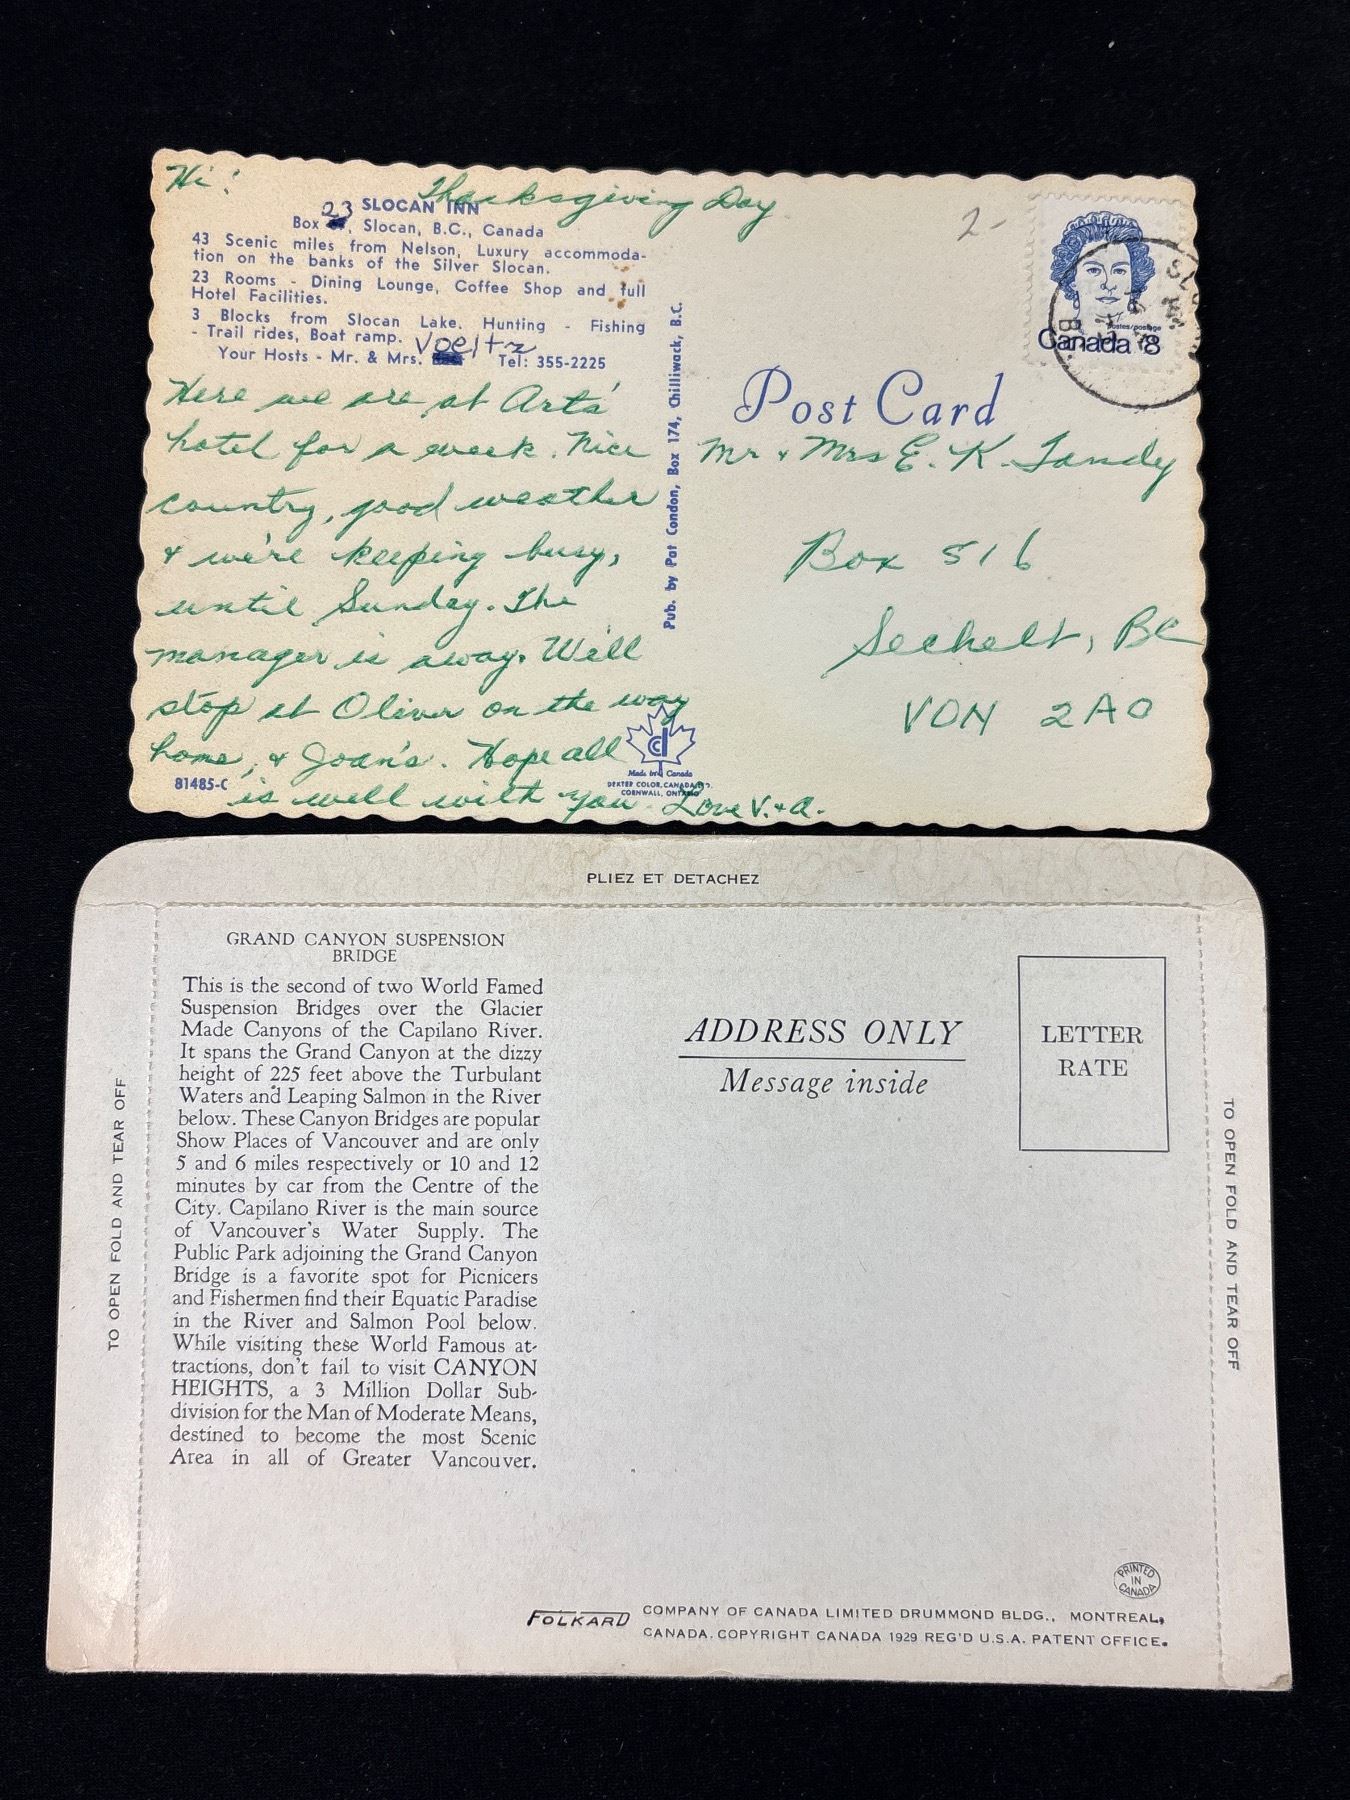 Hi! Thanksgiving Day
2-
23 SLOCAN INN
Box , Slocan, B.C., Canada
43 Scenic miles from Nelson, Luxury accommoda-
tion on the banks of the Silver Slocan.
23 Rooms - Dining Lounge, Coffee Shop and full
Hotel Facilities.
3 Blocks from Slocan Lake. Hunting - Fishing
- Trail rides, Boat ramp.
Voeltz
Your Hosts - Mr. & Mrs. Tel: 355-2225
Here we are at Art's
hotel for a week. Nice
country, good weather
& we're keeping busy,
until Sunday. The
manager is away. Will
stop at Oliver on the way
home, & Joan's. Hope all
is well with you. Love V. & A.
81485-C
Pub. by Pat Condon, Box 174, Chilliwack, B.C.
Made in Canada
DEXTER COLOR, CANADA, LTD.
CORNWALL, ONTARIO
Postes/postage
Canada 8
Post Card
Mr & Mrs E. K. Tandy
Box 516
Sechelt, BC
VON 2A0
PLIEZ ET DETACHEZ
TO OPEN FOLD AND TEAR OFF
GRAND CANYON SUSPENSION
BRIDGE
This is the second of two World Famed
Suspension Bridges over the Glacier
Made Canyons of the Capilano River.
It spans the Grand Canyon at the dizzy
height of 225 feet above the Turbulant
Waters and Leaping Salmon in the River
below. These Canyon Bridges are popular
Show Places of Vancouver and are only
5 and 6 miles respectively or 10 and 12
minutes by car from the Centre of the
City. Capilano River is the main source
of Vancouver's Water Supply. The
Public Park adjoining the Grand Canyon
Bridge is a favorite spot for Picnicers
and Fishermen find their Equatic Paradise
in the River and Salmon Pool below.
While visiting these World Famous at-
tractions, don't fail to visit CANYON
HEIGHTS, a 3 Million Dollar Sub-
division for the Man of Moderate Means,
destined to become the most Scenic
Area in all of Greater Vancouver.
ADDRESS ONLY
Message inside
LETTER
RATE
TO OPEN FOLD AND TEAR OFF
PRINTED
IN
CANADA
FOLKARD COMPANY OF CANADA LIMITED DRUMMOND BLDG., MONTREAL,
CANADA. COPYRIGHT CANADA 1929 REG'D U.S.A. PATENT OFFICE.